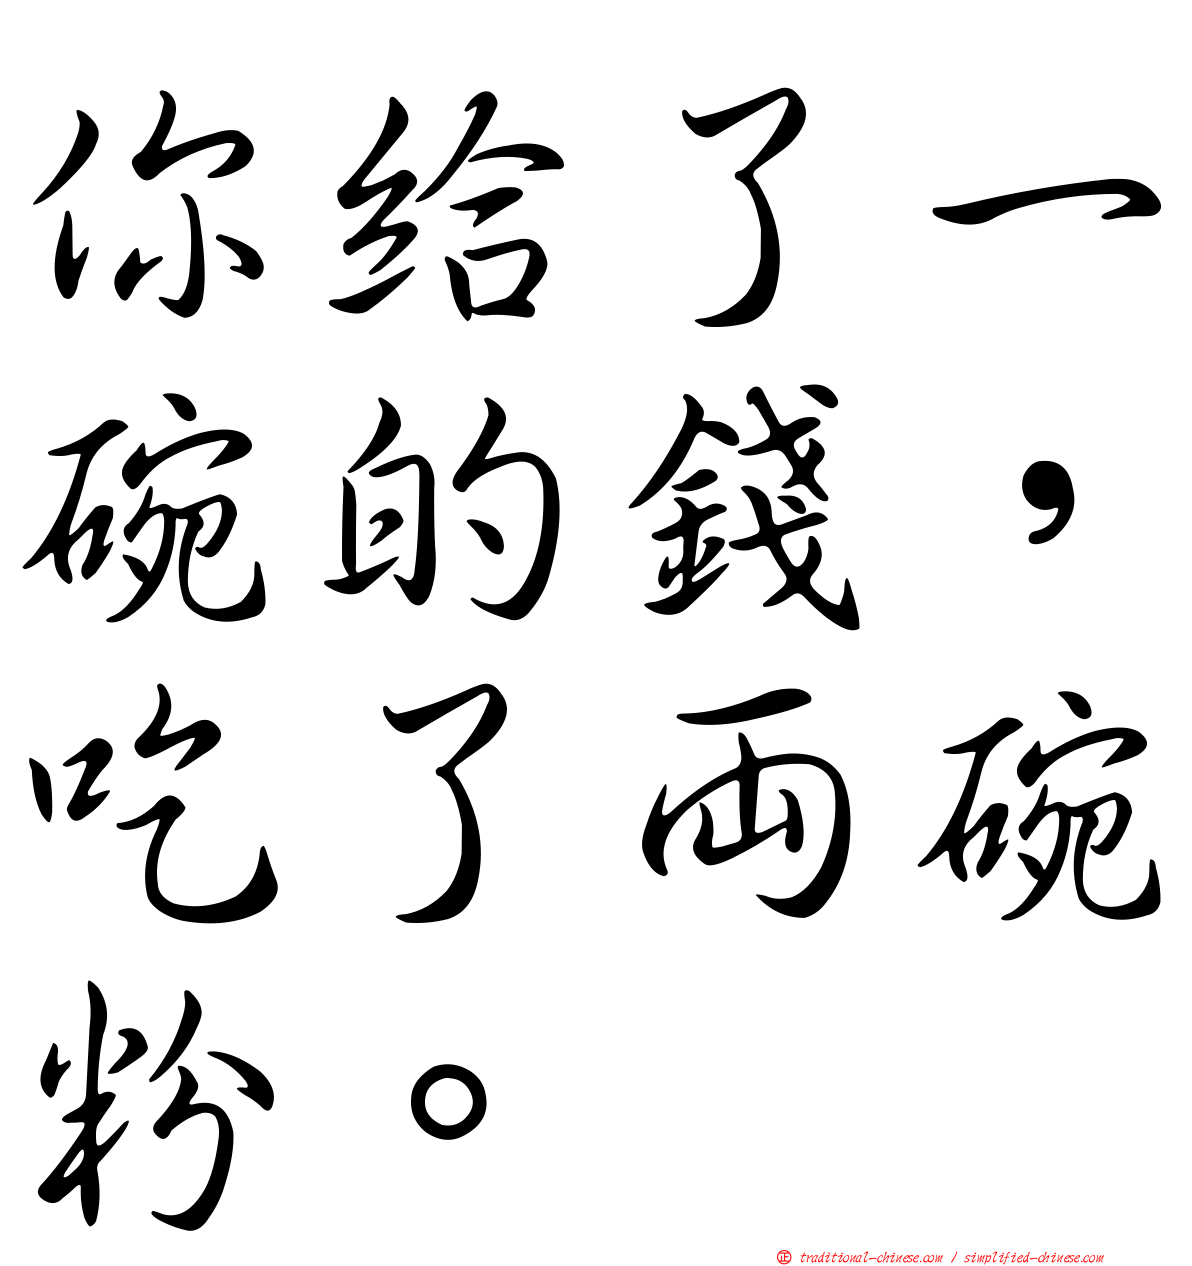 你給了一
碗的錢，
吃了兩碗
粉。
㊣ traditional-chinese.com / simplified-chinese.com